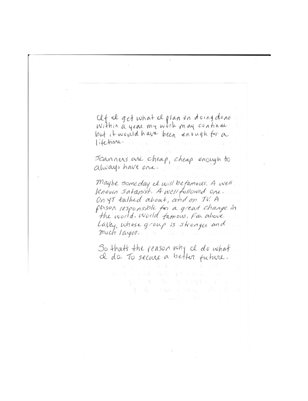 If I get what I plan on doing done
within a year my work may continue
but it would have been enough for a
lifetime.
Scanners are cheap, cheap enough to
always have one.
Maybe someday I will be famous. A well
known satanist. A well followed one.
On yt talked about, and on TV. A
person responsible for a great change in
the world. World famous. Far above
LaVey, whose group is stronger and
much larger.
So thats the reason why I do what
I do. To secure a better future.